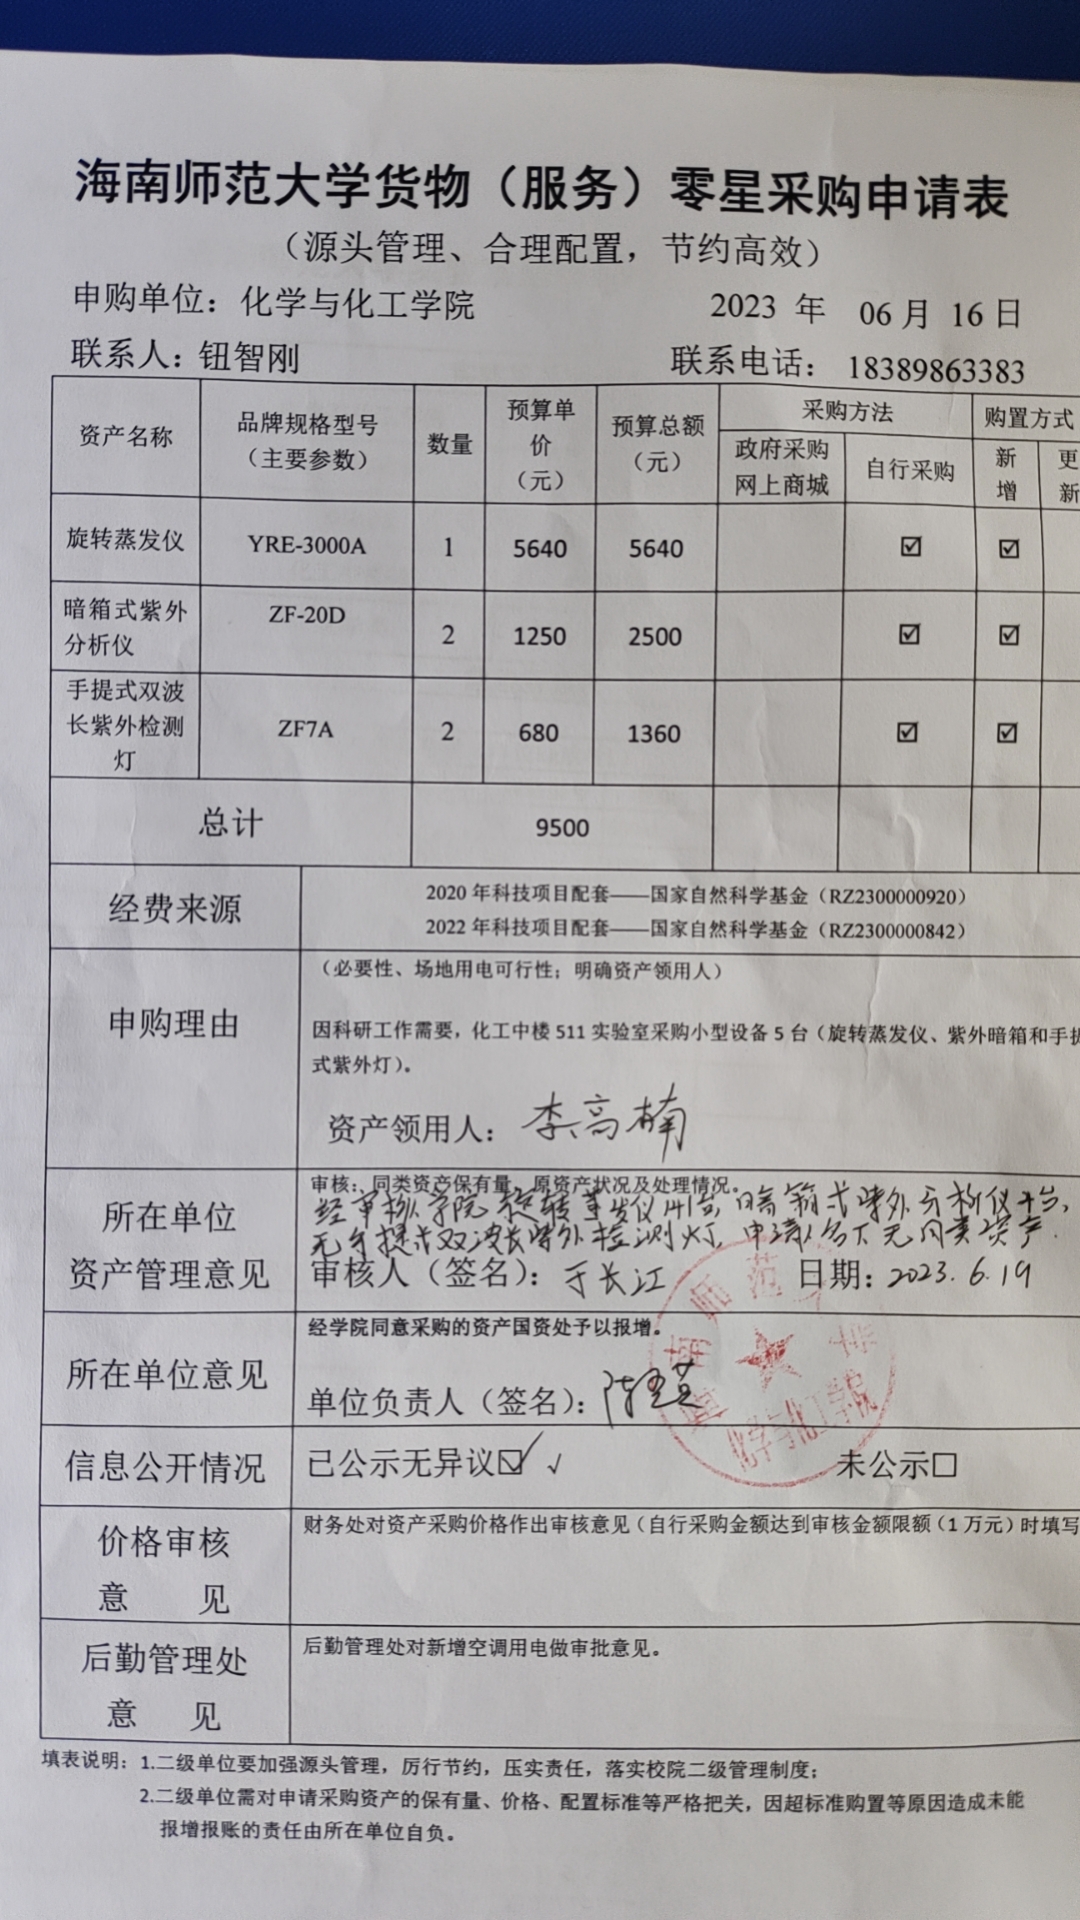 海南师范大学货物（服务）零星采购申请表
（源头管理、合理配置，节约高效）
申购单位：化学与化工学院 2023 年 06 月 16 日
联系人：钮智刚 联系电话： 18389863383
资产名称 品牌规格型号（主要参数） 数量 预算单价（元） 预算总额（元） 采购方法 购置方式
政府采购网上商城 自行采购 新增 更新
旋转蒸发仪 YRE-3000A 1 5640 5640 ☑ ☑
暗箱式紫外分析仪 ZF-20D 2 1250 2500 ☑ ☑
手提式双波长紫外检测灯 ZF7A 2 680 1360 ☑ ☑
总计 9500
经费来源
2020 年科技项目配套——国家自然科学基金（RZ2300000920）
2022 年科技项目配套——国家自然科学基金（RZ2300000842）
申购理由
（必要性、场地用电可行性；明确资产领用人）
因科研工作需要，化工中楼 511 实验室采购小型设备 5 台（旋转蒸发仪、紫外暗箱和手提
式紫外灯）。
资产领用人：李高楠
所在单位
资产管理意见
审核：同类资产保有量、原资产状况及处理情况。
经审核学院旋转蒸发仪 台，暗箱式紫外分析仪 台，
无手提式双波长紫外检测灯，申请人名下无同类资产.
审核人（签名）：于长江 日期：2023.6.19
所在单位意见
经学院同意采购的资产国资处予以报增。
单位负责人（签名）：
海南师范大学
化学与化工学院
信息公开情况 已公示无异议☑ √ 未公示□
价格审核
意 见
财务处对资产采购价格作出审核意见（自行采购金额达到审核金额限额（1 万元）时填写
后勤管理处
意 见
后勤管理处对新增空调用电做审批意见。
填表说明：1.二级单位要加强源头管理，厉行节约，压实责任，落实校院二级管理制度；
2.二级单位需对申请采购资产的保有量、价格、配置标准等严格把关，因超标准购置等原因造成未能
报增报账的责任由所在单位自负。